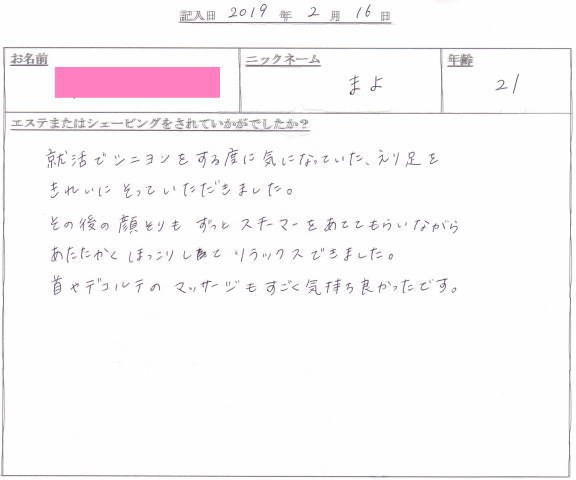 記入日 2019 年 2 月 16 日
お名前 ニックネーム 年齢
まよ 21
エステまたはシェービングをされていかがでしたか?
就活でシニヨンをする度に気になっていた、えり足を
きれいにそっていただきました。
その後の顔そりも ずっと スチーマーをあててもらいながら
あたたかく ほっこりして リラックスできました。
首やデコルテの マッサージも すごく気持ち良かったです。